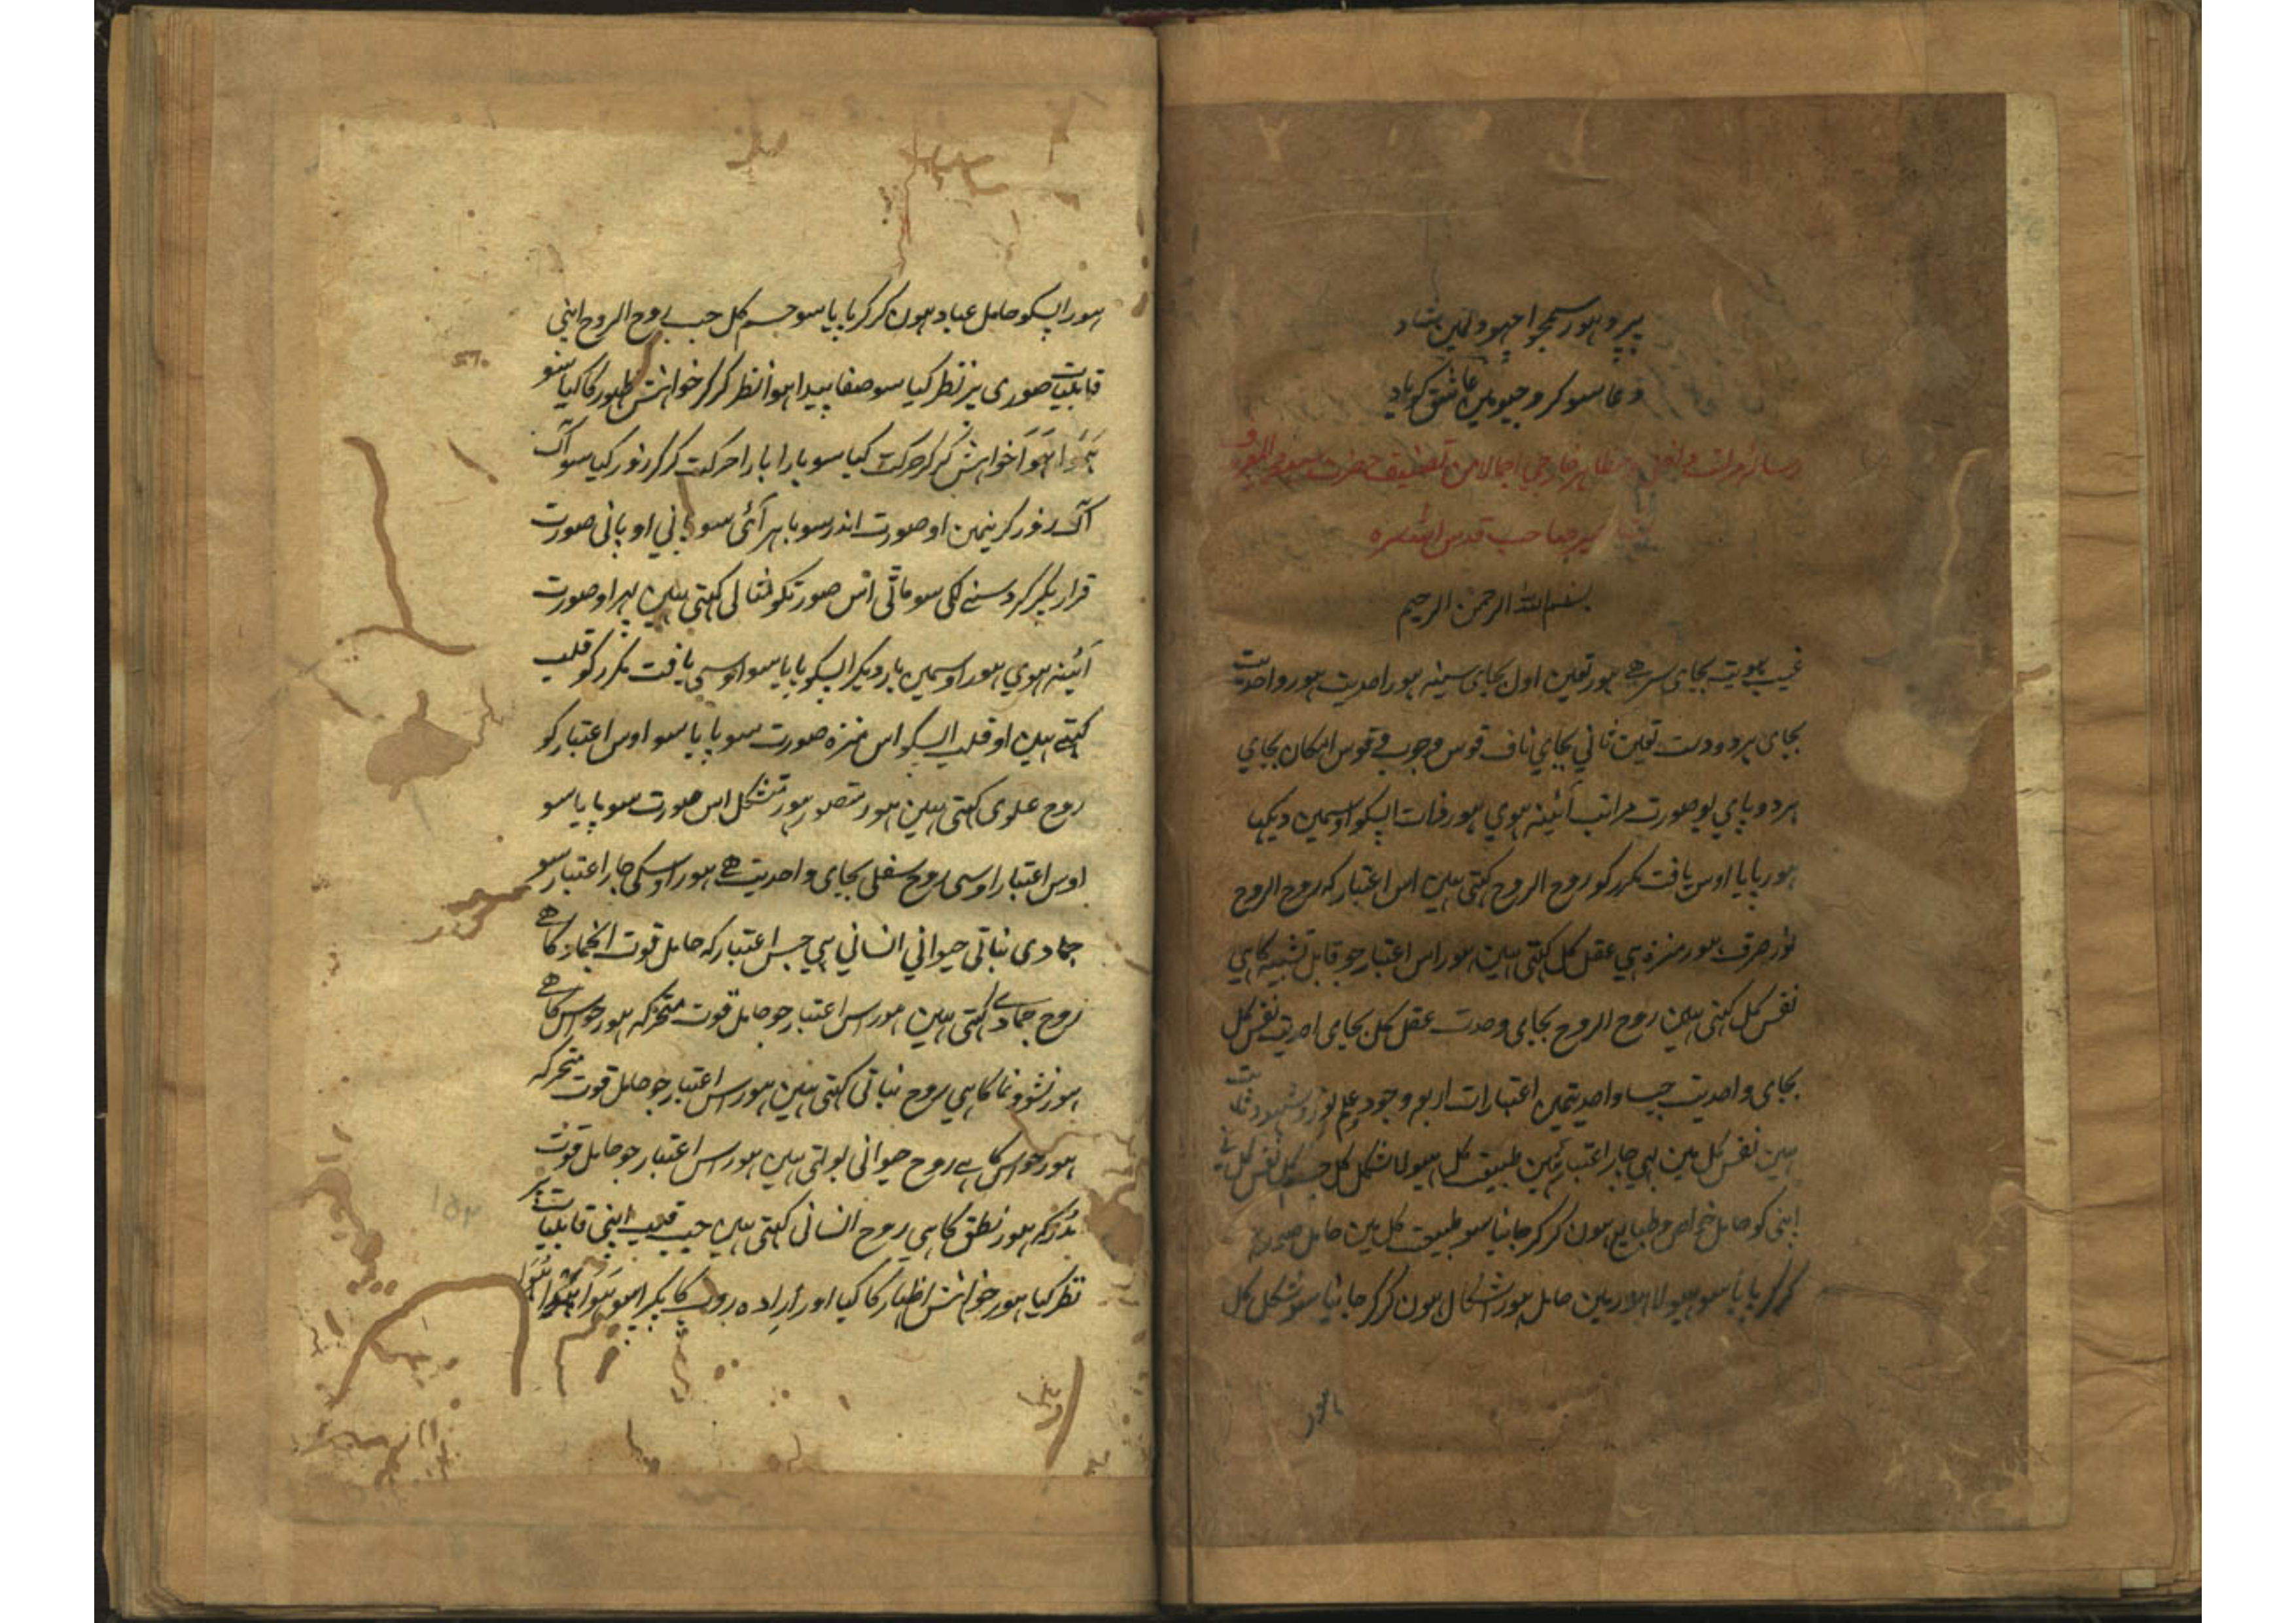 پیرو ہور سمجو اچھو دلمین شاد
دعا سو کرو جیو مین عاشق کو یاد
رسالہ خارجی اجمالا من تصنیف حضرت
پیر صاحب قدس اللہ سرہ
بسم اللہ الرحمن الرحیم
غیب ہویت بجای سر ہے ہور تعین اول بجای سینہ ہور احدیت ہور واحدیت
بجای ہردو دست تعین ثانی بجای ناف قوس وجوب و قوس امکان بجای
ہردو پای یو صورت مراتب آئینہ ہوی ہور ذات اپسکو اوسمین دیکہا
ہور پایا اوس یافت مکرر کو روح الروح کہتی ہین اس اعتبار کہ روح الروح
نور صرف ہور منزہ ہی عقل کل کہتی ہین ہور اس اعتبار جو قابل تشبیہ کا ہی
نفس کل کہتی ہین روح الروح بجای وحدت عقل کل بجای احدیت نفس کل
بجای واحدیت جیسا واحدیتمین اعتبارات اربع وجود علم نور و شہود
ہین نفس کل مین بہی چار اعتبار ہین طبیعت کل ہیولا شکل کل جسم کل نفس کل نے
اپنی کو حامل خواص و طبایع ہون کر کر جانیا سو طبیعت کل ہین حامل صور
کر کر پایا سو ہیولا ہور مین حامل ہور اشکال ہون کر کر جانیا سو شکل کل
ہور
ہور اپسکو حامل عباد ہون کر کر پایا سو جسم کل جب روح الروح اپنی
قابلیات صوری پر نظر کیا سو صفا پیدا ہوا نظر کر کر خواہش ظہور کا کیا سو
ہوا ہوا خواہش کر کر حرکت کیا سو بارا بارا حرکت کر کر زور کیا سو آگ
آگ زور کرنیمن او صورت اندر سو باہر آئی سو پانی او پانی صورت
قرار پکر کر دسنے لگی سو ماٹی اس صورتکو مثالی کہتی ہین پہر او صورت
آئینہ ہوی ہور اوسمین بار دیگر اپسکو پایا سو اوسی یافت مکرر کو قلب
کہتے ہین او قلب اپسکو اس منزہ صورت سو پایا سو اوس اعتبار کو
روح علوی کہتی ہین ہور متصور ہور متشکل اس صورت سو پایا سو
اوس اعتبار اوسی روح سفلی بجای واحدیت ہے ہور اوسکی چار اعتبار سو
جمادی نباتی حیوانی انسانی ہی جس اعتبار کہ حامل قوت انجماد کا ہے
روح جمادے کہتی ہین ہور اس اعتبار جو حامل قوت متحرکہ ہور حواس کا ہے
ہور نشو و نما کا ہی روح نباتی کہتی ہین ہور اس اعتبار جو حامل قوت متحرکہ
ہور حواس کا ہے روح حیوانی بولتی ہین ہور اس اعتبار جو حامل قوت
مدرکہ ہور نطق کا ہی روح انسانی کہتی ہین جب قلب اپنی قابلیات پر
نظر کیا ہور خواہش اظہار کا کیا اور ارادہ روپ کا پکرا سو ہوا ہوا